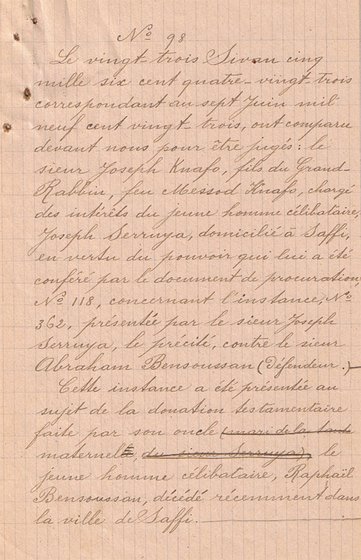 Nº 98
Le vingt-trois Sivan cinq
mille six cent quatre-vingt trois
correspondant au sept Juin mil
neuf cent vingt-trois, ont comparu
devant nous pour être jugés: le
sieur Joseph Knafo, fils du Grand-
Rabbin, feu Messod Knafo, chargé
des intérêts du jeune homme célibataire,
Joseph Serruya, domicilié à Saffi,
en vertu du pouvoir qui lui a été
conféré par le document de procuration,
Nº 118, concernant l'instance, Nº
362, présentée par le sieur Joseph
Serruya, le précité, contre le sieur
Abraham Bensoussan (Défendeur.)
Cette instance a été présentée au
sujet de la donation testamentaire
faite par son oncle (mari de la tante
maternelle, du sieur Serruya), le
jeune homme célibataire, Raphaël
Bensoussan, décédé récemment dans
la ville de Saffi.